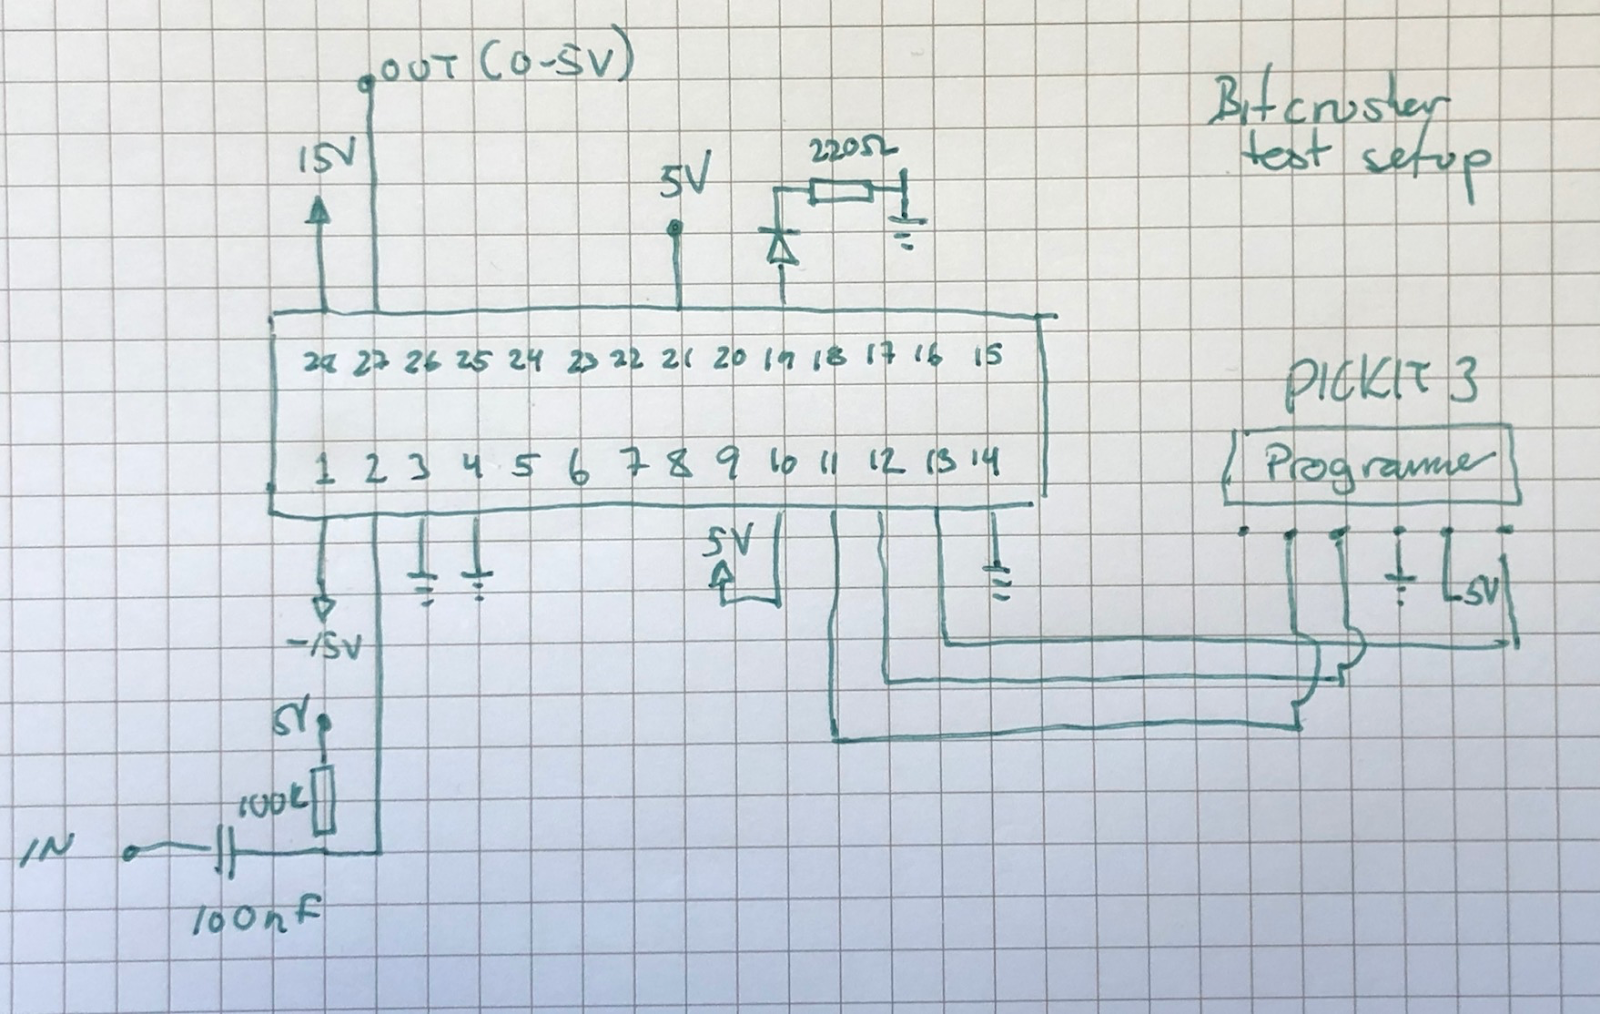 OUT (0-5V)
Bitcrusher
test setup
15V
5V
220Ω
28 27 26 25 24 23 22 21 20 19 18 17 16 15
PICKIT 3
1 2 3 4 5 6 7 8 9 10 11 12 13 14
Programmer
5V
5V
-15V
5V
100K
IN
100nF